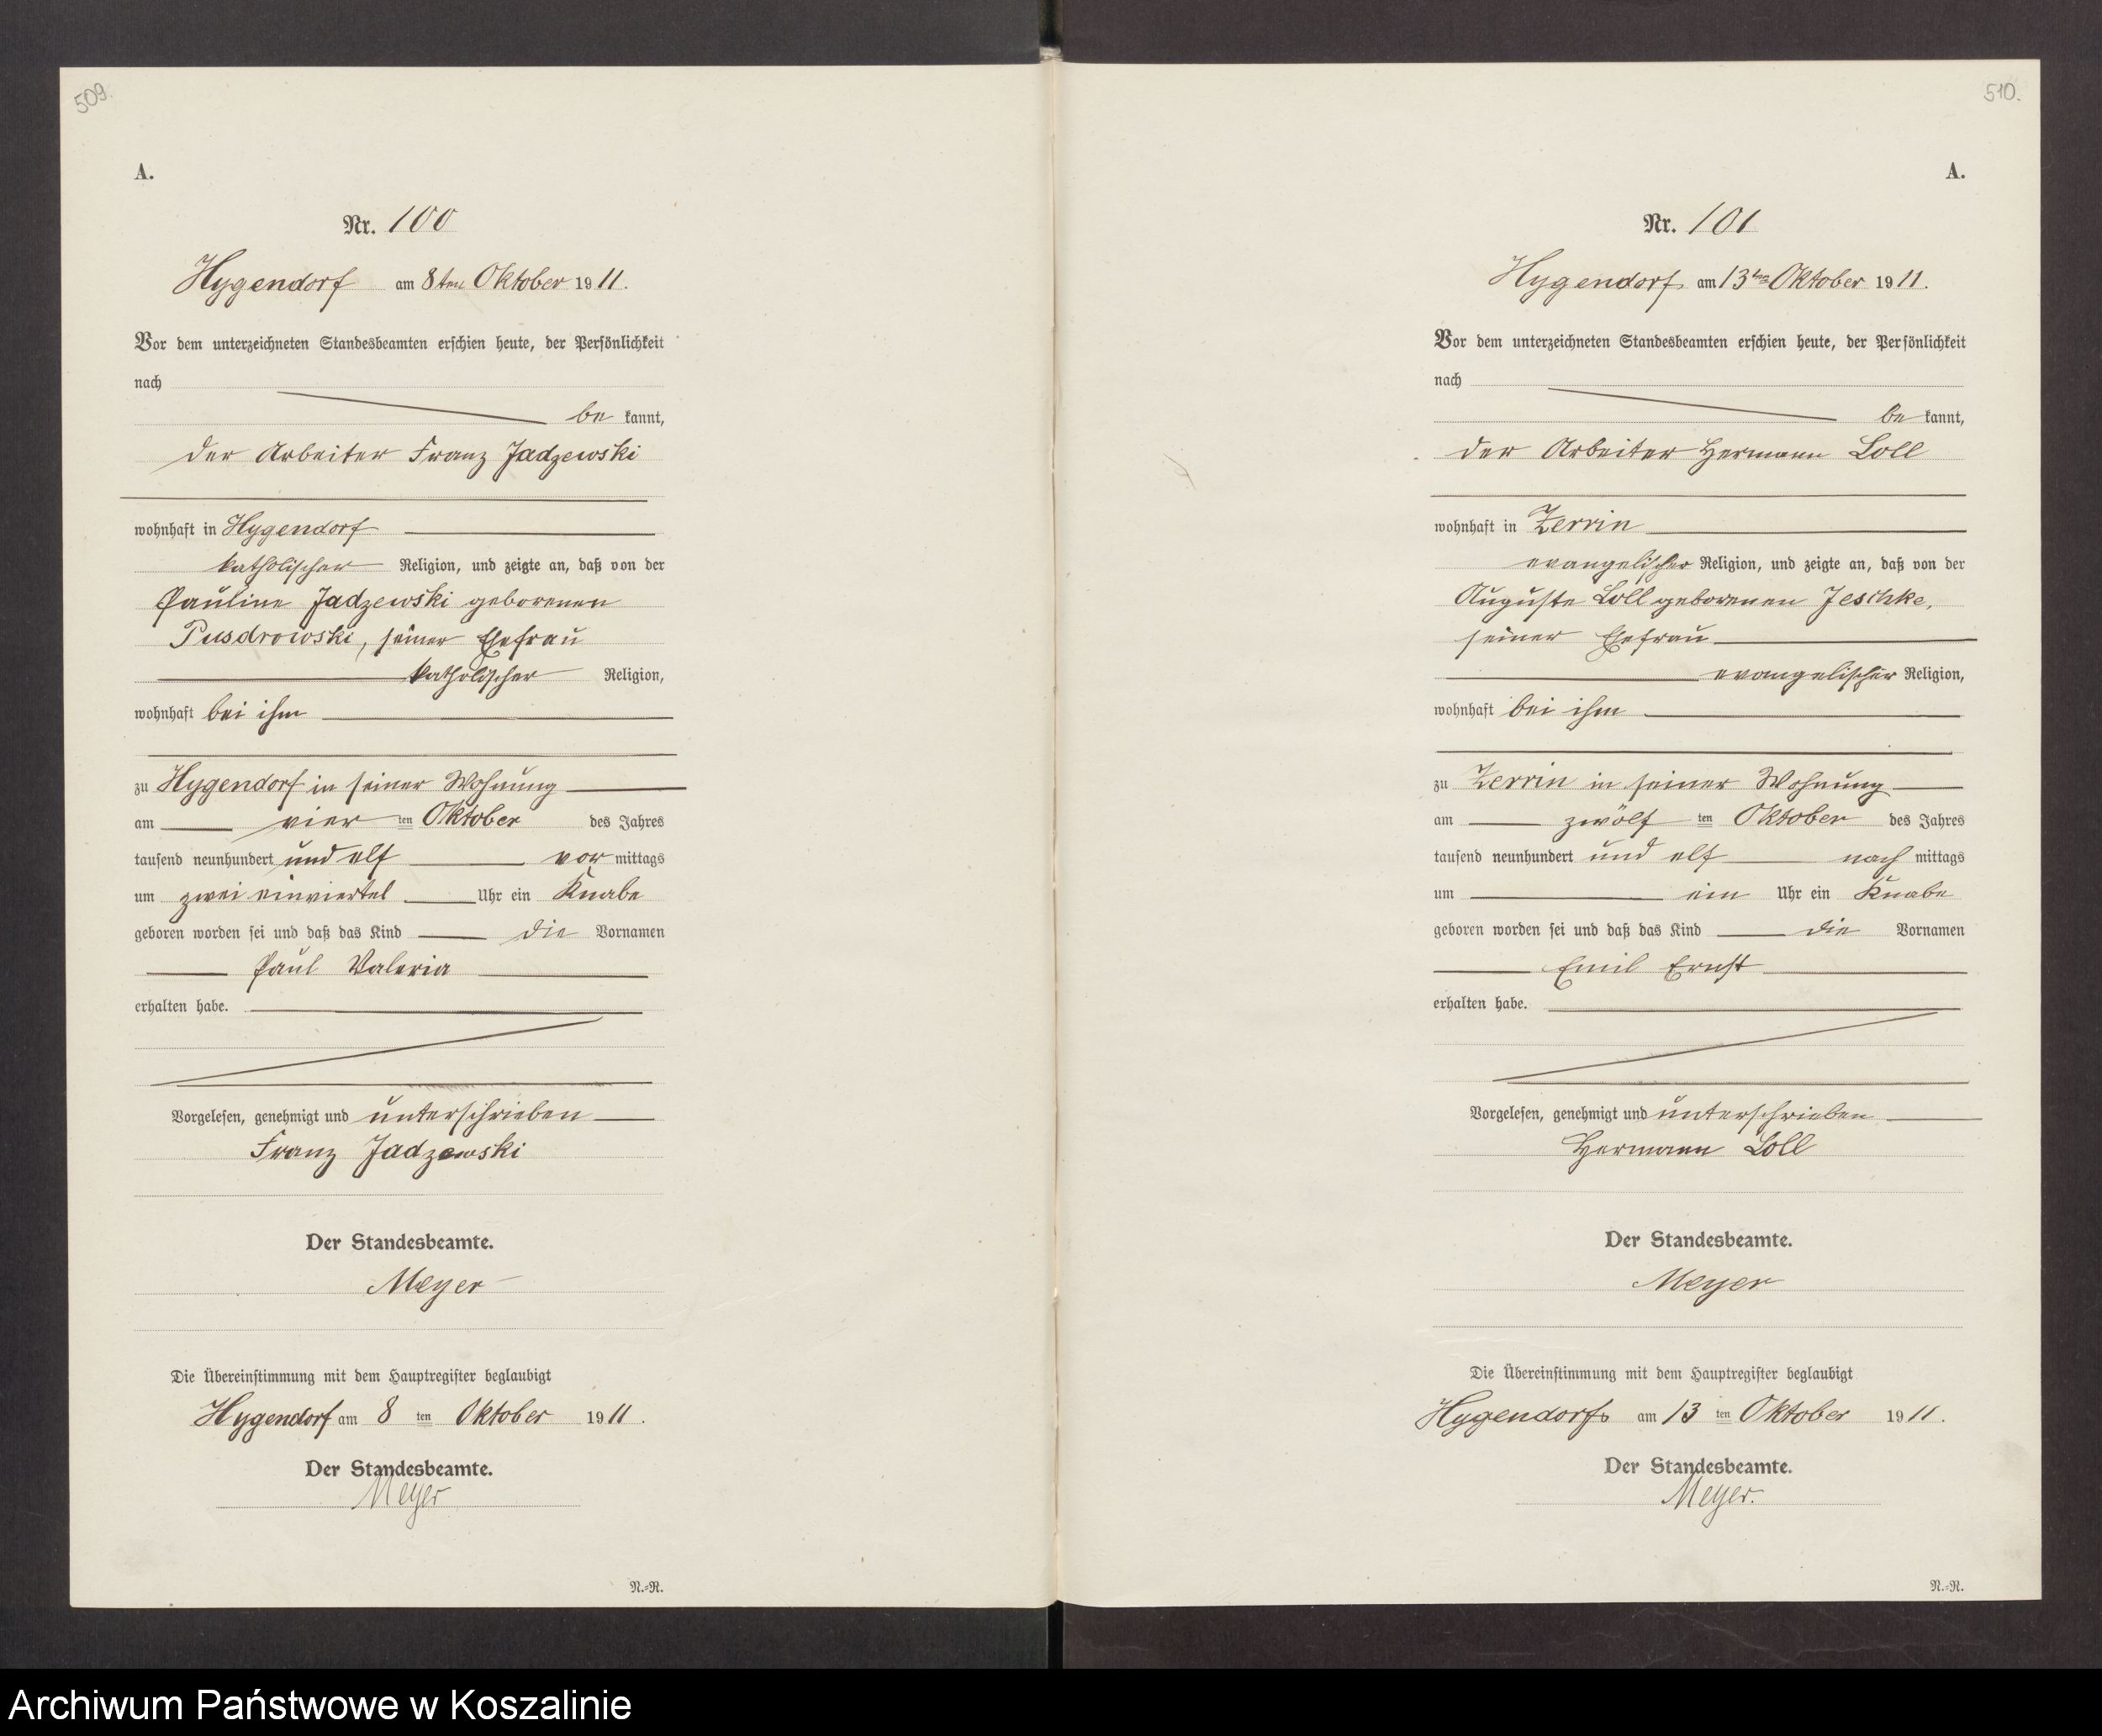 509.
A.
Nr. 100
Hygendorf am 8ten Oktober 1911.
Vor dem unterzeichneten Standesbeamten erschien heute, der Persönlichkeit
nach
be kannt,
der Arbeiter Franz Jadzewski
wohnhaft in Hygendorf
katholischer Religion, und zeigte an, daß von der
Pauline Jadzewski geborenen
Pusdrowski, seiner Ehefrau
katholischer Religion,
wohnhaft bei ihm
zu Hygendorf in seiner Wohnung
am vier ten Oktober des Jahres
tausend neunhundert und elf vor mittags
um zwei einviertel Uhr ein Knabe
geboren worden sei und daß das Kind die Vornamen
Paul Valeria
erhalten habe.
Vorgelesen, genehmigt und unterschrieben
Franz Jadzewski
Der Standesbeamte.
Meyer
Die Übereinstimmung mit dem Hauptregister beglaubigt
Hygendorf am 8 ten Oktober 1911.
Der Standesbeamte.
Meyer
N.=R.
510.
A.
Nr. 101
Hygendorf am 13ten Oktober 1911.
Vor dem unterzeichneten Standesbeamten erschien heute, der Persönlichkeit
nach
be kannt,
der Arbeiter Hermann Loll
wohnhaft in Zerrin
evangelischer Religion, und zeigte an, daß von der
Auguste Loll geborenen Jeschke,
seiner Ehefrau
evangelischer Religion,
wohnhaft bei ihm
zu Zerrin in seiner Wohnung
am zwölf ten Oktober des Jahres
tausend neunhundert und elf nach mittags
um ein Uhr ein Knabe
geboren worden sei und daß das Kind die Vornamen
Emil Ernst
erhalten habe.
Vorgelesen, genehmigt und unterschrieben
Hermann Loll
Der Standesbeamte.
Meyer
Die Übereinstimmung mit dem Hauptregister beglaubigt
Hygendorf am 13 ten Oktober 1911.
Der Standesbeamte.
Meyer.
N.=R.
Archiwum Państwowe w Koszalinie